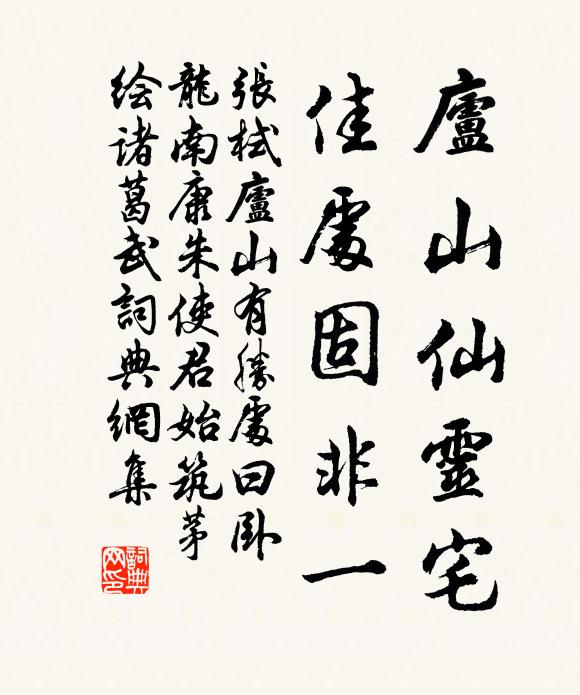 廬山仙靈宅
佳處固非一
張栻廬山有勝處曰卧
龍南康朱使君始筑茅
绘諸葛武詞典網集
詞典网印